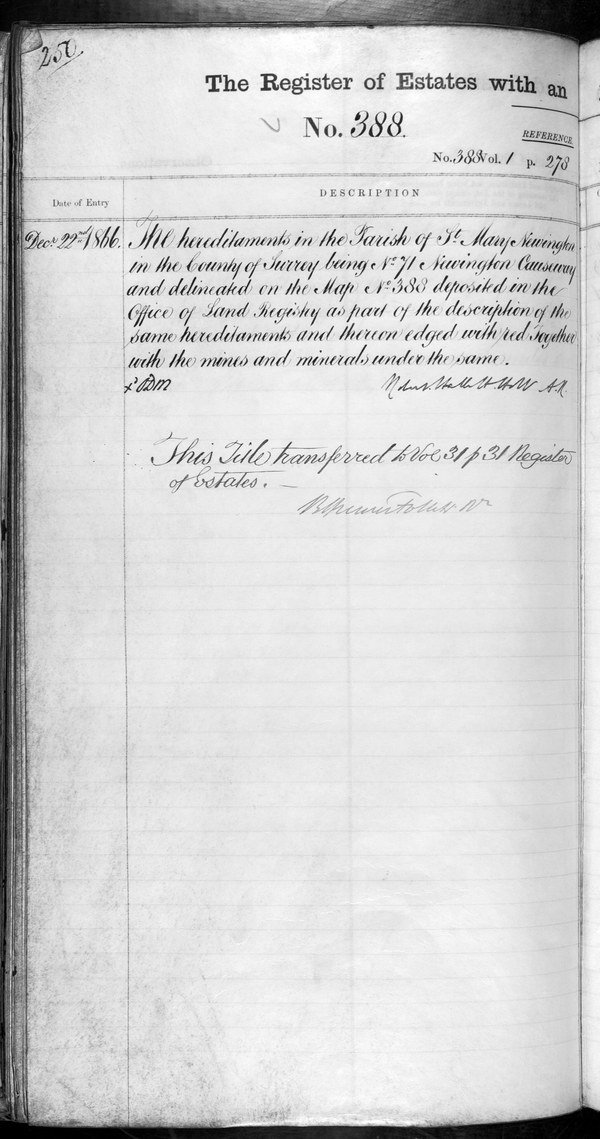 250
The Register of Estates with an
No. 388.
REFERENCE
No. 388 Vol. 1 p. 278
Date of Entry
DESCRIPTION
Decr. 22nd 1866.
The hereditaments in the Parish of St. Mary Newington
in the County of Surrey being No. 71 Newington Causeway
and delineated on the Map No. 388 deposited in the
Office of Land Registry as part of the description of the
same hereditaments and thereon edged with red Together
with the mines and minerals under the same.
A.R.
This Title transferred to Vol 31 p 31 Register
of Estates. —